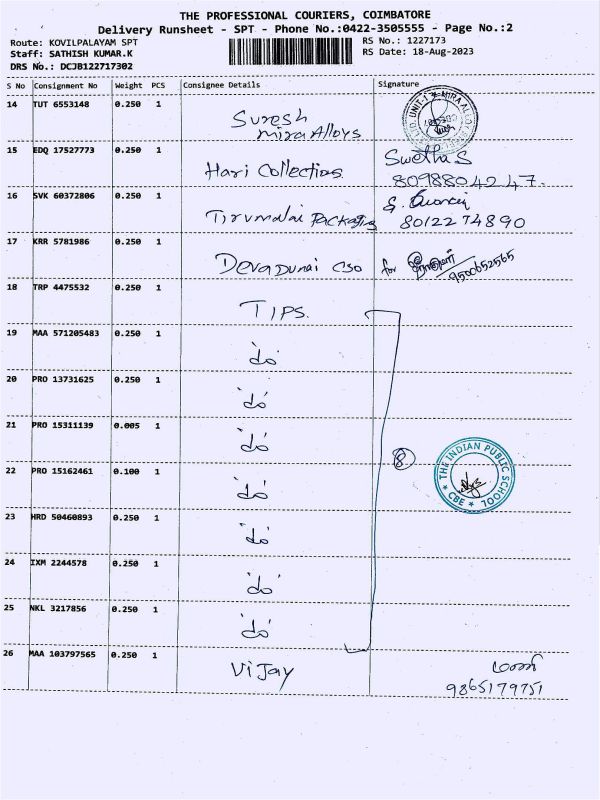 THE PROFESSIONAL COURIERS, COIMBATORE
Delivery Runsheet - SPT - Phone No.:0422-3505555 - Page No.:2
Route: KOVILPALAYAM SPT
RS No.: 1227173
Staff: SATHISH KUMAR.K
RS Date: 18-Aug-2023
DRS No.: DCJB122717302
S No Consignment No Weight PCS Consignee Details Signature
14 TUT 6553148 0.250 1 Suresh
Mira Alloys
UNIT-1 * MIRA ALLOY
15 EDQ 17527773 0.250 1 Hari Collections Swetha S
8098804247.
16 SVK 60372806 0.250 1 Tirumalai Packaging
8012274890
17 KRR 5781986 0.250 1 Deva Dunai CSO for
9500652565
18 TRP 4475532 0.250 1 TIPS.
19 MAA 571205483 0.250 1 "do"
20 PRO 13731625 0.250 1 "do"
21 PRO 15311139 0.005 1 "do"
22 PRO 15162461 0.100 1 "do" 8
THE INDIAN PUBLIC SCHOOL * CBE *
23 HRD 50460893 0.250 1 "do"
24 IXM 2244578 0.250 1 "do"
25 NKL 3217856 0.250 1 "do"
26 MAA 103797565 0.250 1 Vijay
9865179751